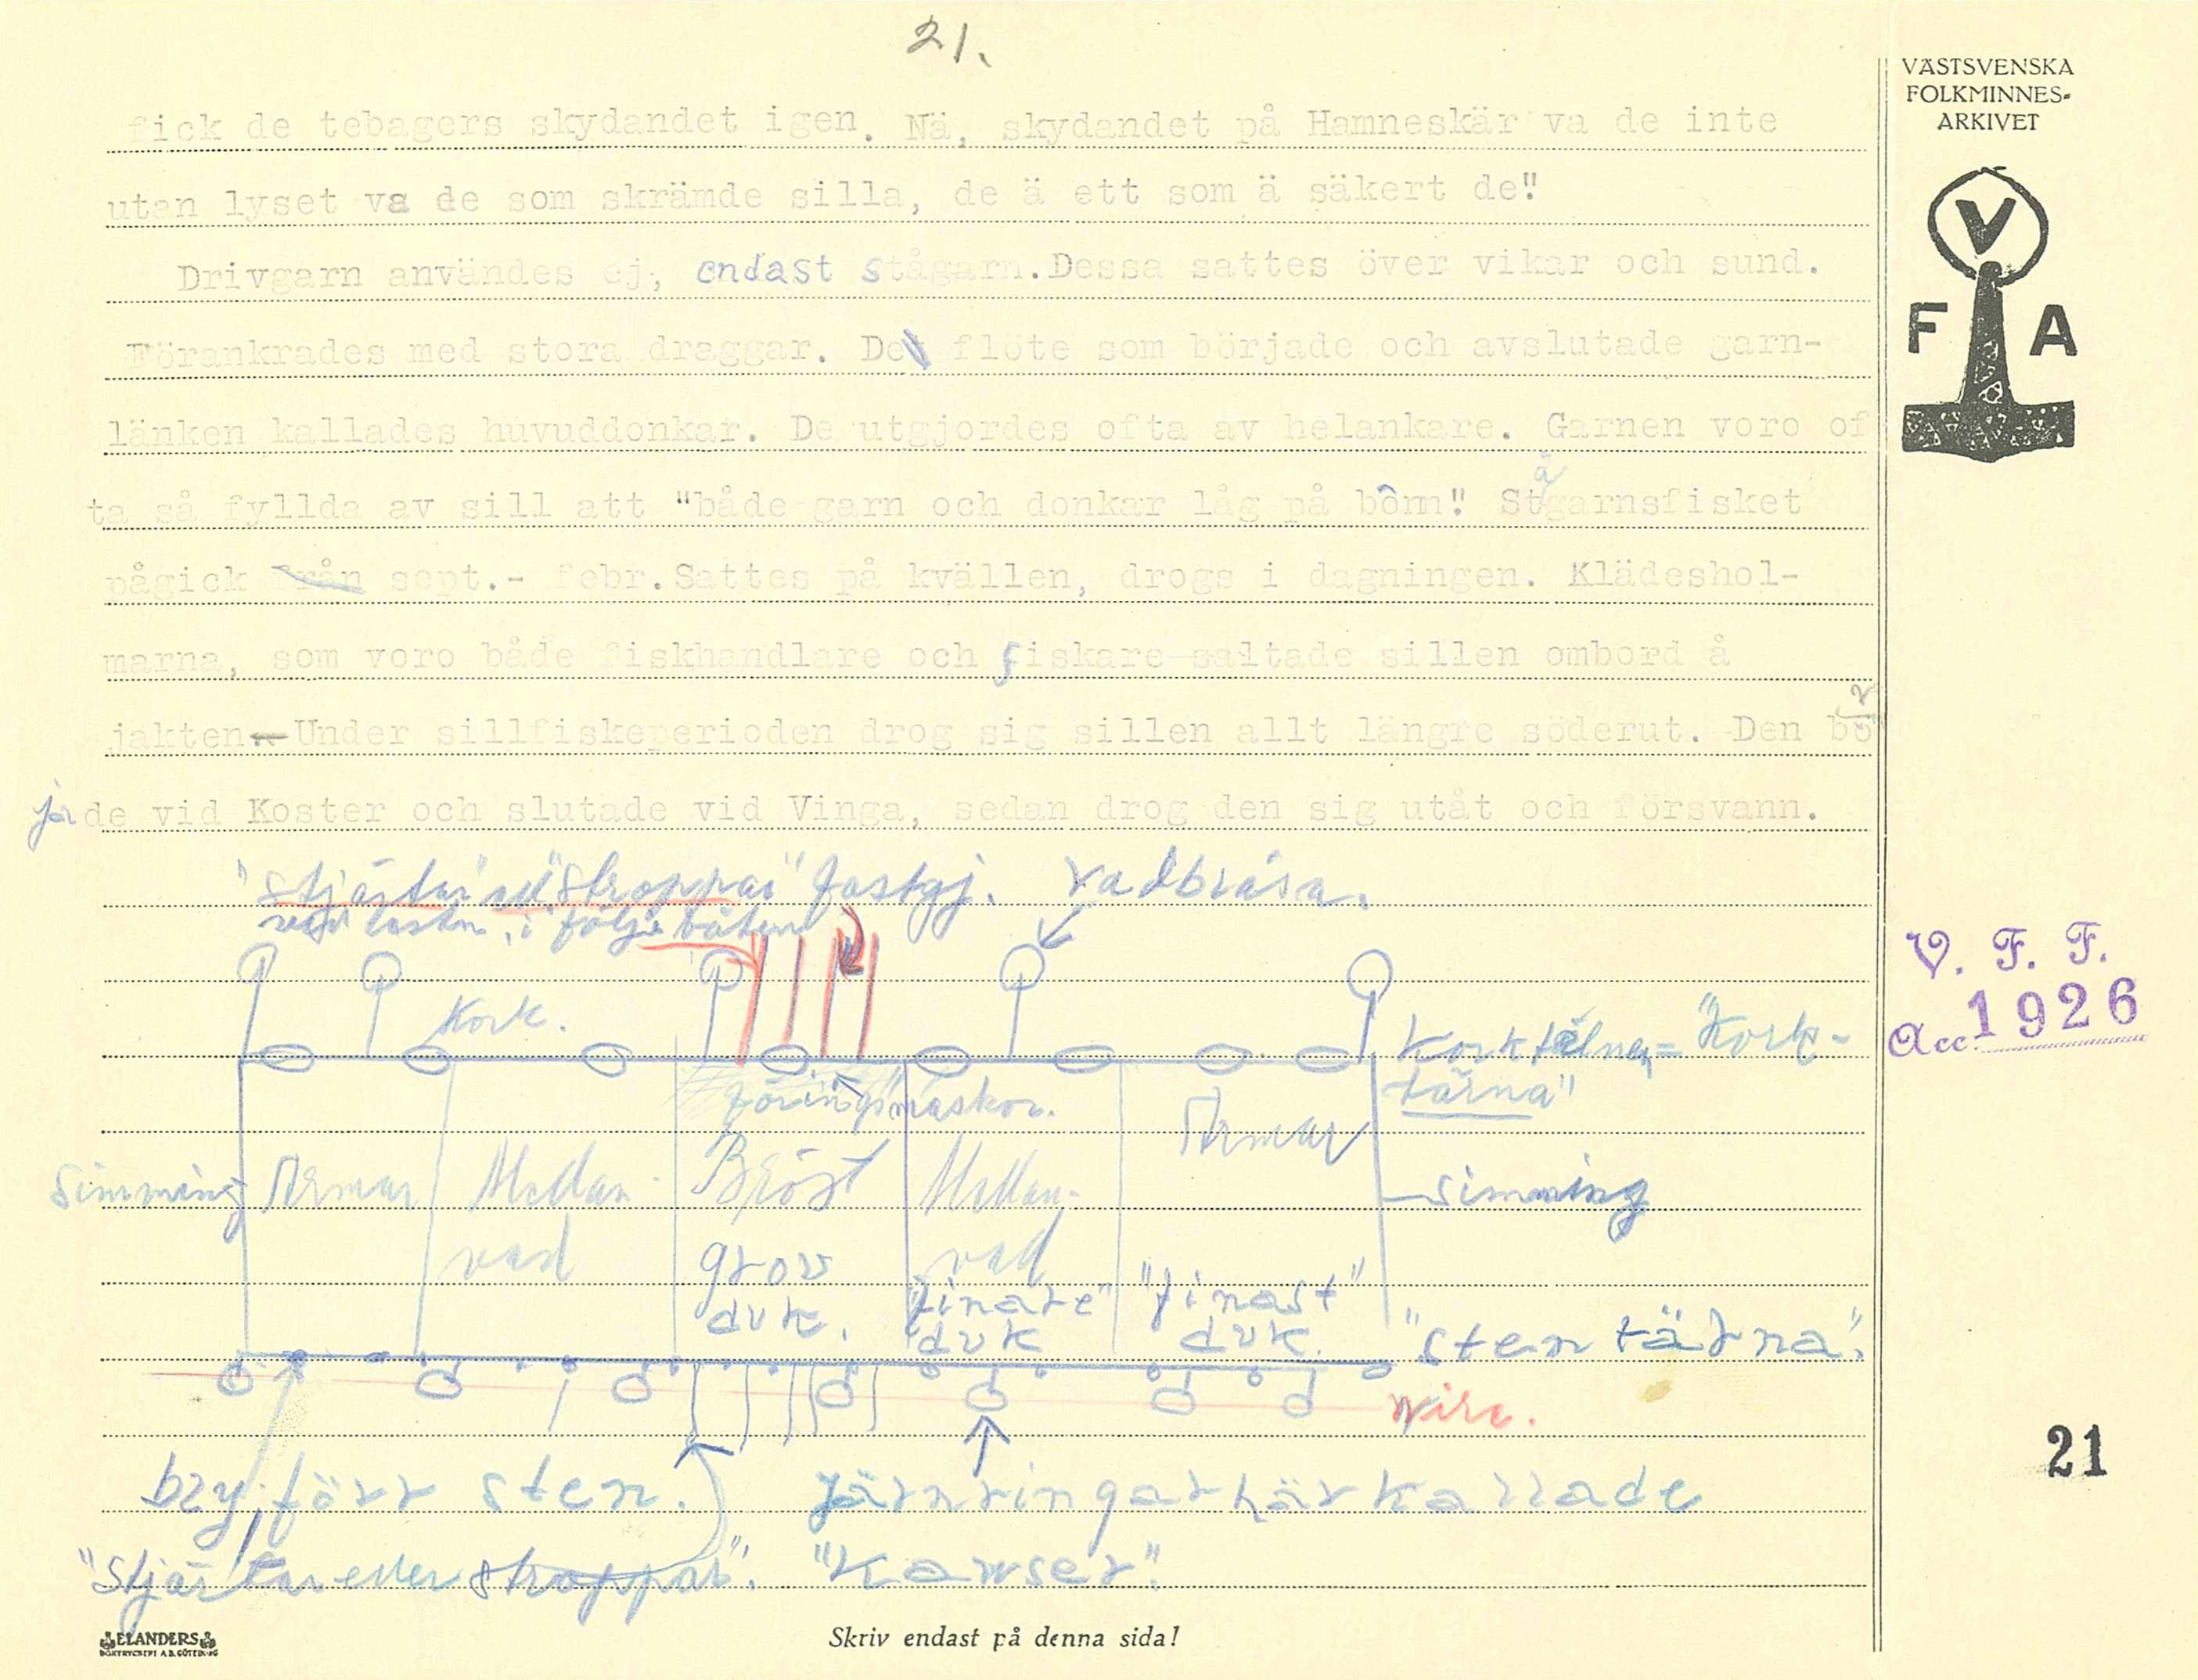 21.
VÄSTSVENSKA
FOLKMINNES-
ARKIVET
V
F A
fick de tebagers skydandet igen. Nä, skydandet på Hamneskär va de inte
utan lyset va de som skrämde silla, de ä ett som ä säkert de"!
Drivgarn användes ej, endast stågarn. Dessa sattes över vikar och sund.
Förankrades med stora draggar. De flöte som började och avslutade garn-
länken kallades huvuddonkar. De utgjordes ofta av helankare. Garnen voro of
ta så fyllda av sill att "både garn och donkar låg på bômm"! Stågarnsfisket
pågick från sept.- febr. Sattes på kvällen, drogs i dagningen. Klädeshol-
marna, som voro både fiskhandlare och fiskare saltade sillen ombord å
jakten. Under sillfiskeperioden drog sig sillen allt längre söderut. Den bör
jade vid Koster och slutade vid Vinga, sedan drog den sig utåt och försvann.
"stjärtar" "stroppar" fastgj. Vadbråsa.
i följebåten
V. F. F.
Acc. 1926
Kork.
Korktälnen = "Kork-
tärna"
föring "maskor.
Simming Armar Mellan- Bröst Mellan- Armar Simming
vad grov vad
duk. "finare" "finast"
duk duk. "sten tärna".
wire.
21
bly, förr sten. Järnringar här kallade
"Stjärtar eller stroppar". "Kawser".
ELANDERS
BOKTRYCKERI A.B. GÖTEBORG
Skriv endast på denna sida!